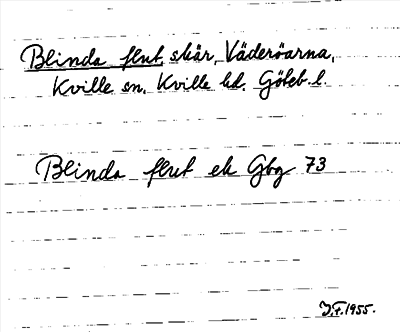 Blinda flut skär, Väderöarna,
Kville sn. Kville hd. Göteb. l.
Blinda flut ek Gbg 73
J.F. 1955.